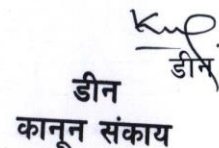 डीन
डीन
कानून संकाय